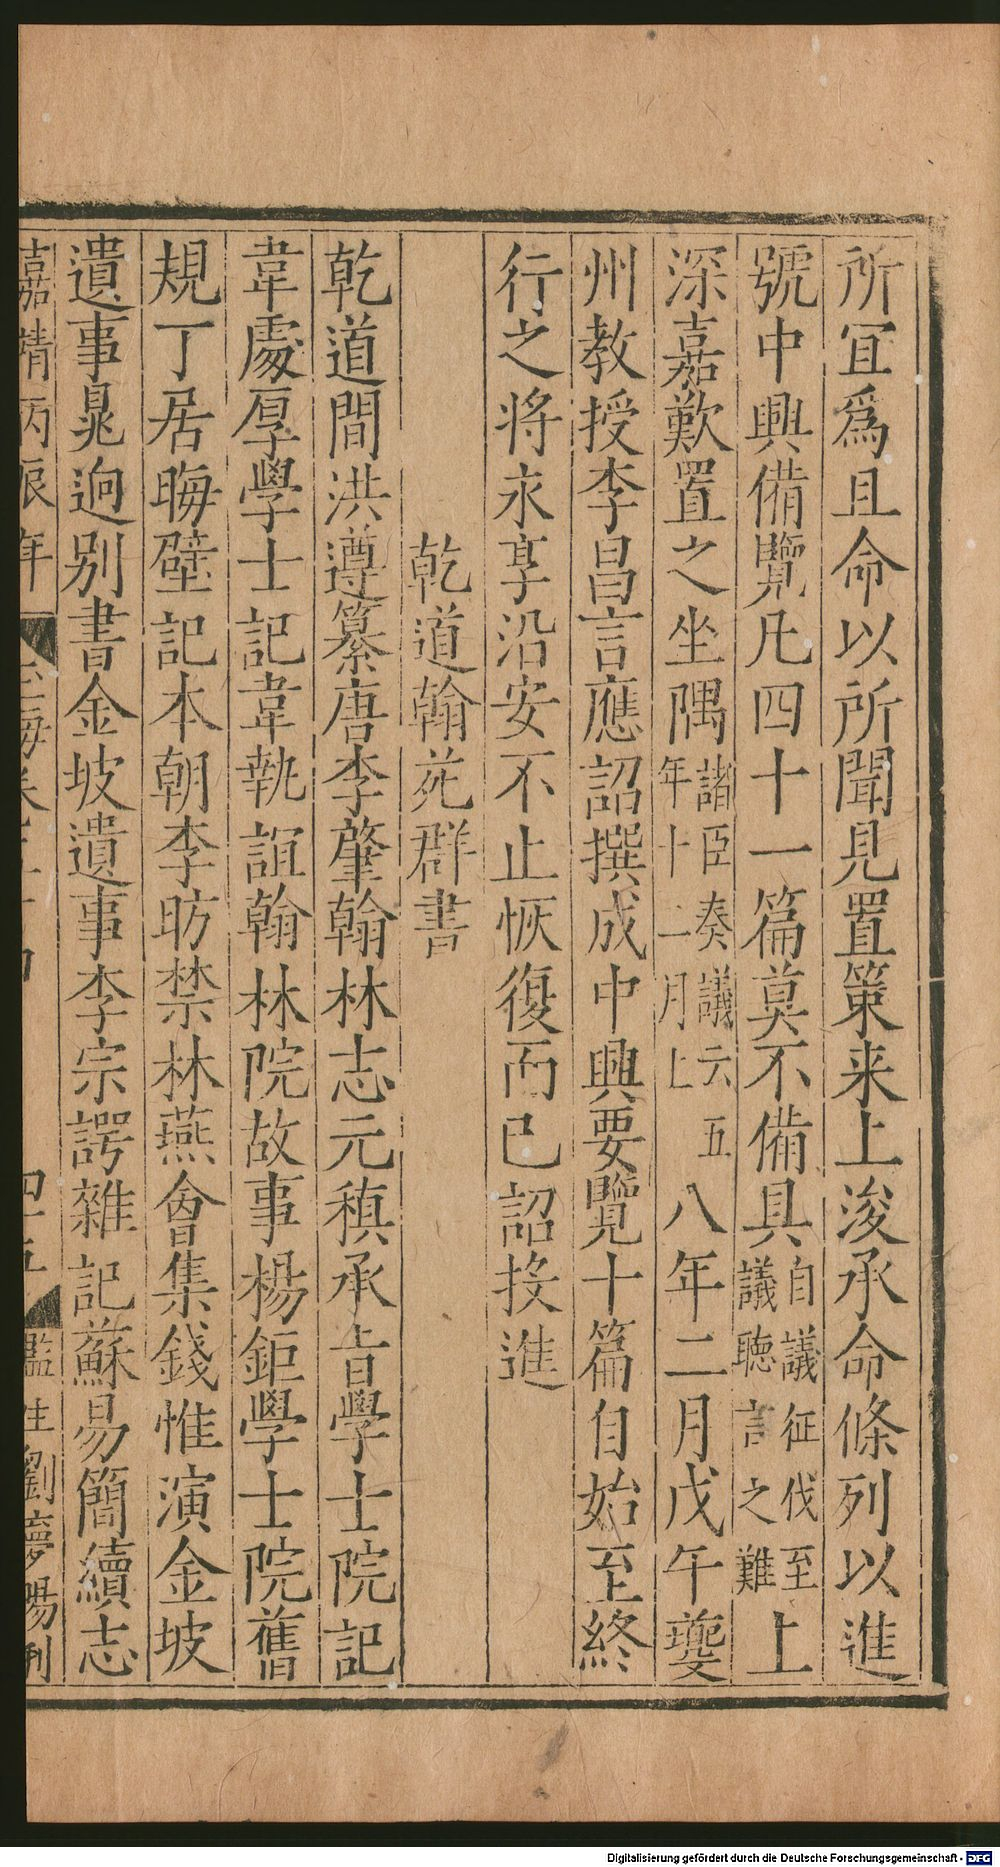 所宜爲且命以所聞見置策来上浚承命條列以進
號中興備覽凡四十一篇莫不備具自議征伐至議聽言之難上
深嘉歎置之坐隅諸臣奏議云五年十二月上八年二月戊午夔
州教授李昌言應詔撰成中興要覽十篇自始至終
行之将永享沿安不止恢復而已詔投進
乾道翰苑群書
乾道間洪遵纂唐李肇翰林志元稹承旨學士院記
韋處厚學士記韋執誼翰林院故事楊鉅學士院舊
規丁居晦壁記本朝李昉禁林燕會集錢惟演金坡
遺事晁迥别書金坡遺事李宗諤雜記蘇易簡續志
嘉靖丙辰年
四十五
監生劉夢陽刊
Digitalisierung gefördert durch die Deutsche Forschungsgemeinschaft - DFG